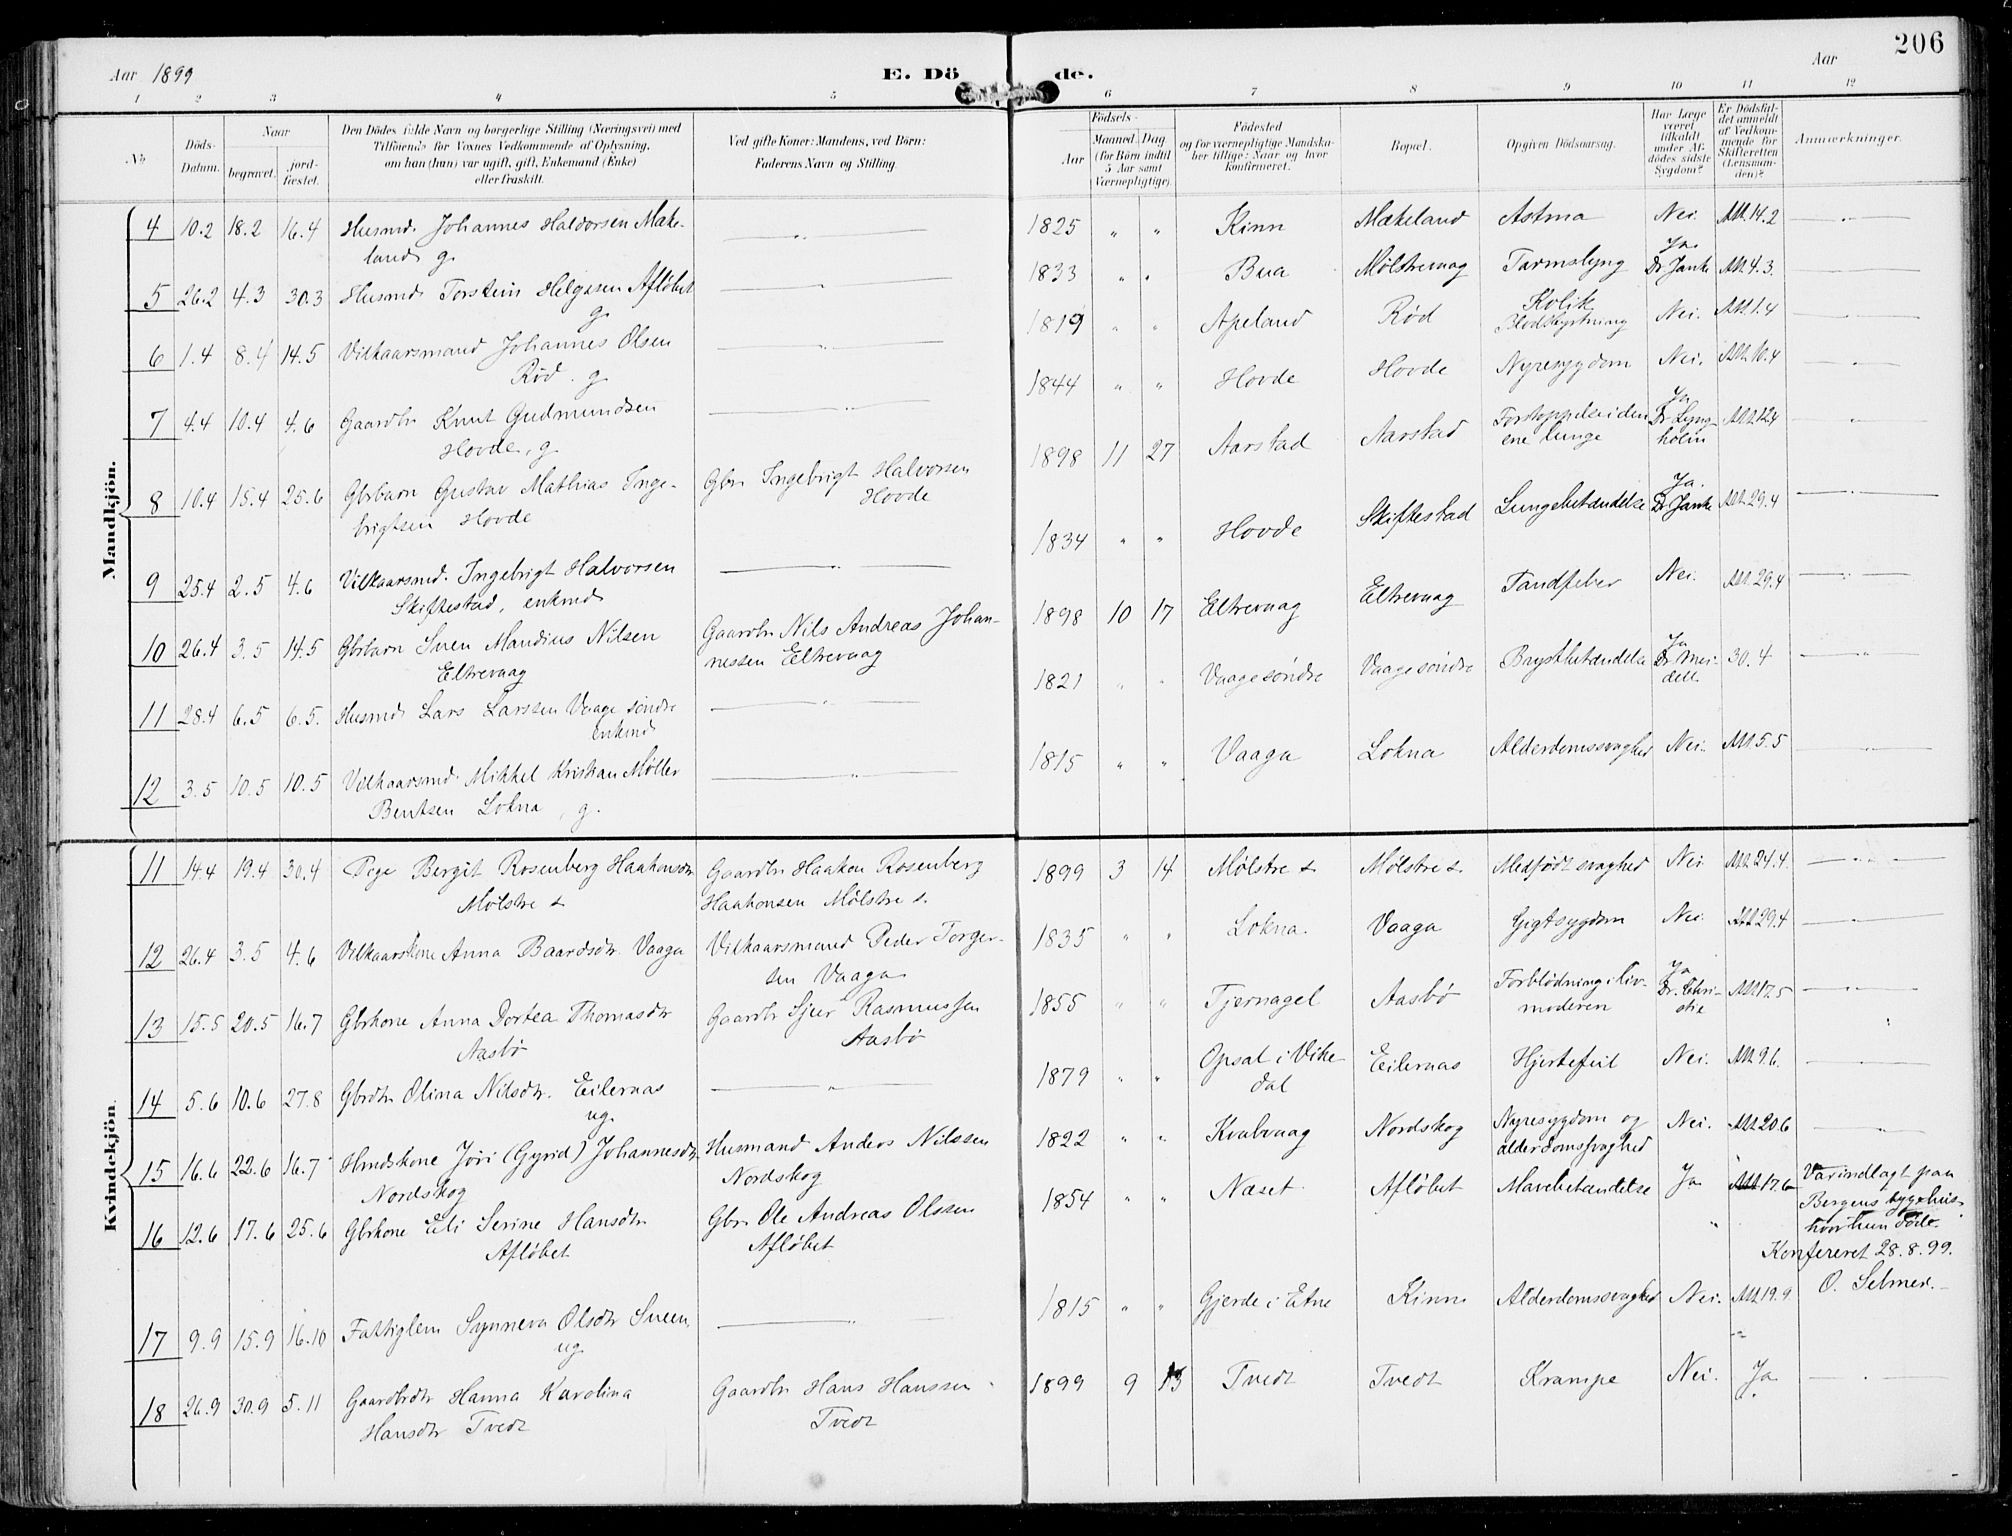 206
Aar 1899
E. Dö de.
Aar
1 2 3 4 5 6 7 8 9 10 11 12
No
Döds-
Datum.
Naar
begravet.
jord-
fæstet.
Den Dödes fulde Navn og borgerlige Stilling (Næringsvei) med
Tilföiende for Voxnes Vedkommende af Oplysning,
om han (hun) var ugift, gift, Enkemand (Enke)
eller fraskilt.
Ved gifte Koner: Mandens, ved Börn:
Faderens Navn og Stilling.
Födsels-
Aar
Maaned. Dag
(for Börn indtil
5 Aar samt
Værnepligtige).
Födested
og for værnepligtige Mandska-
ber tillige: Naar og hvor
konfirmeret.
Bopæl.
Opgiven Dödsaarsag.
Har Læge
været
tilkaldt
under Af-
dödes sidste
Sygdom?
Er Dödsfal-
det anmeldt
af Vedkom-
mende for
Skifteretten
(Lensman-
den)?
Anmærkninger.
Mandkjön.
4 10.2 18.2 16.4 Husmd. Johannes Haldorsen Mæke-
land g.
1825 " " Kinn Mækeland Astma Nei. Att. 14.2
5 26.2 4.3 30.3 Husmd. Torstein Helgesen Afløbet
g.
1833 " " Bua Mølstrevaag Tarmslyng Ja
Dr Janke Att. 4.3.
6 1.4 8.4 14.5 Vilkaarsmand Johannes Olsen
Rød. g.
1819 " " Apeland Rød Kolik
Blodstyrtning Nei. Att. 1.4
7 4.4 10.4 4.6 Gaardbr Knut Gudmundsen
Hovde, g.
1844 " " Hovde Hovde Nyresygdom Nei. Att. 10.4
8 10.4 15.4 25.6 Gbrbarn Gustav Mathias Inge-
brigtsen Hovde
Gbr. Ingebrigt Halvorsen
Hovde
1898 11 27 Aarstad Aarstad Forstoppelse i den
ene lunge Ja
Dr Lyng-
holm Att. 12.4
9 25.4 2.5 4.6 Vilkaarsmd. Ingebrigt Halvorsen
Skiftestad, enkmd
1834 " " Hovde Skiftestad Lungebetændelse Ja.
Dr. Janke Att. 29.4
10 26.4 3.5 14.5 Gbrbarn Sven Mandius Nilsen
Eltrevaag
Gaardbr Nils Andreas Johan-
nessen Eltrevaag
1898 10 17 Eltrevaag Eltrevaag Tandfeber Nei. Att. 29.4
11 28.4 6.5 6.5. Husmd. Lars Larssen Vaage søndre
enkmd
1821 " " Vaage søndre Vaage søndre Brystbetændelse Ja
30.4
12 3.5 10.5 10.5 Vilkaarsmd. Mikkel Kristian Møller
Bentsen Lokna, g.
1815 " " Vaaga Lokna Alderdomssvaghed Nei. Att. 5.5
Kvindekjön.
11 14.4 19.4 30.4 Pige Bergit Rosenberg Haakonsdtr
Mølstre s.
Gaardbr Haakon Rosenberg
Haakonsen Mølstre s.
1899 3 14 Mølstre s. Mølstre s. Medfødt svaghed Nei Att. 24.4.
12 26.4 3.5 4.6 Vilkaarskone Anna Baardsdtr. Vaaga
Vilkaarsmand Peder Torger-
sen Vaaga
1835 " " Lokna. Vaaga Gigtsygdom Nei. Att. 29.4
13 15.5 20.5 16.7 Gbrkone Anna Dortea Thomasdtr
Aasbø
Gaardbr Sjur Rasmussen
Aasbø
1855 " " Tjernagel Aasbø Forblødning i liv-
moderen Ja
Dr. Chri-
stie Att. 17.5
14 5.6 10.6 27.8 Gbrdtr Olina Nilsdtr. Eilernas
ug.
1879 " " Opsal i Vike-
dal Eilernas Hjertefeil Nei. Att. 9.6.
15 16.6 22.6 16.7 Hmdskone Jøri (Gyrid) Johannesdtr
Nordskog
Husmand Anders Nilssen
Nordskog
1822 " " Kvalvaag Nordskog Nyresygdom og
alderdomssvaghed Nei. Att. 20.6
16 12.6 17.6 25.6 Gbrkone Eli Serine Hansdtr
Afløbet
Gbr Ole Andreas Olssen
Afløbet
1854 " " Næset Afløbet Mavebetændelse Ja Att. 17.6
Var indlagt paa
Bergens sygehus
hvor hun døde.
Konfereret 28.8.99.
O. Selmer.
17 9.9 15.9 16.10 Fattiglem Synneva Olsdtr Sveen,
ug.
1815 " " Gjerde i Etne Kinn Alderdomssvaghed Nei. Att. 19.9
18 26.9 30.9 5.11 Gaardbrdtr Hanna Karolina
Hansdtr Tvedt
Gaardbr Hans Hanssen
Tvedt
1899 9 13 Tvedt Tvedt Krampe Nei. Ja